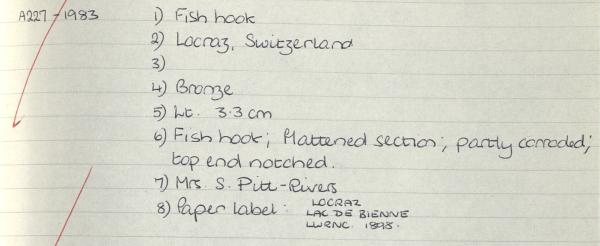 A227-1983 1) Fish hook
2) Locraz, Switzerland
3)
4) Bronze
5) Lt. 3.3 cm
6) Fish hook; flattened section; partly corroded;
top end notched.
7) Mrs. S. Pitt-Rivers
8) Paper label: LOCRAZ
LAC DE BIENNE
LWRNC. 1898.